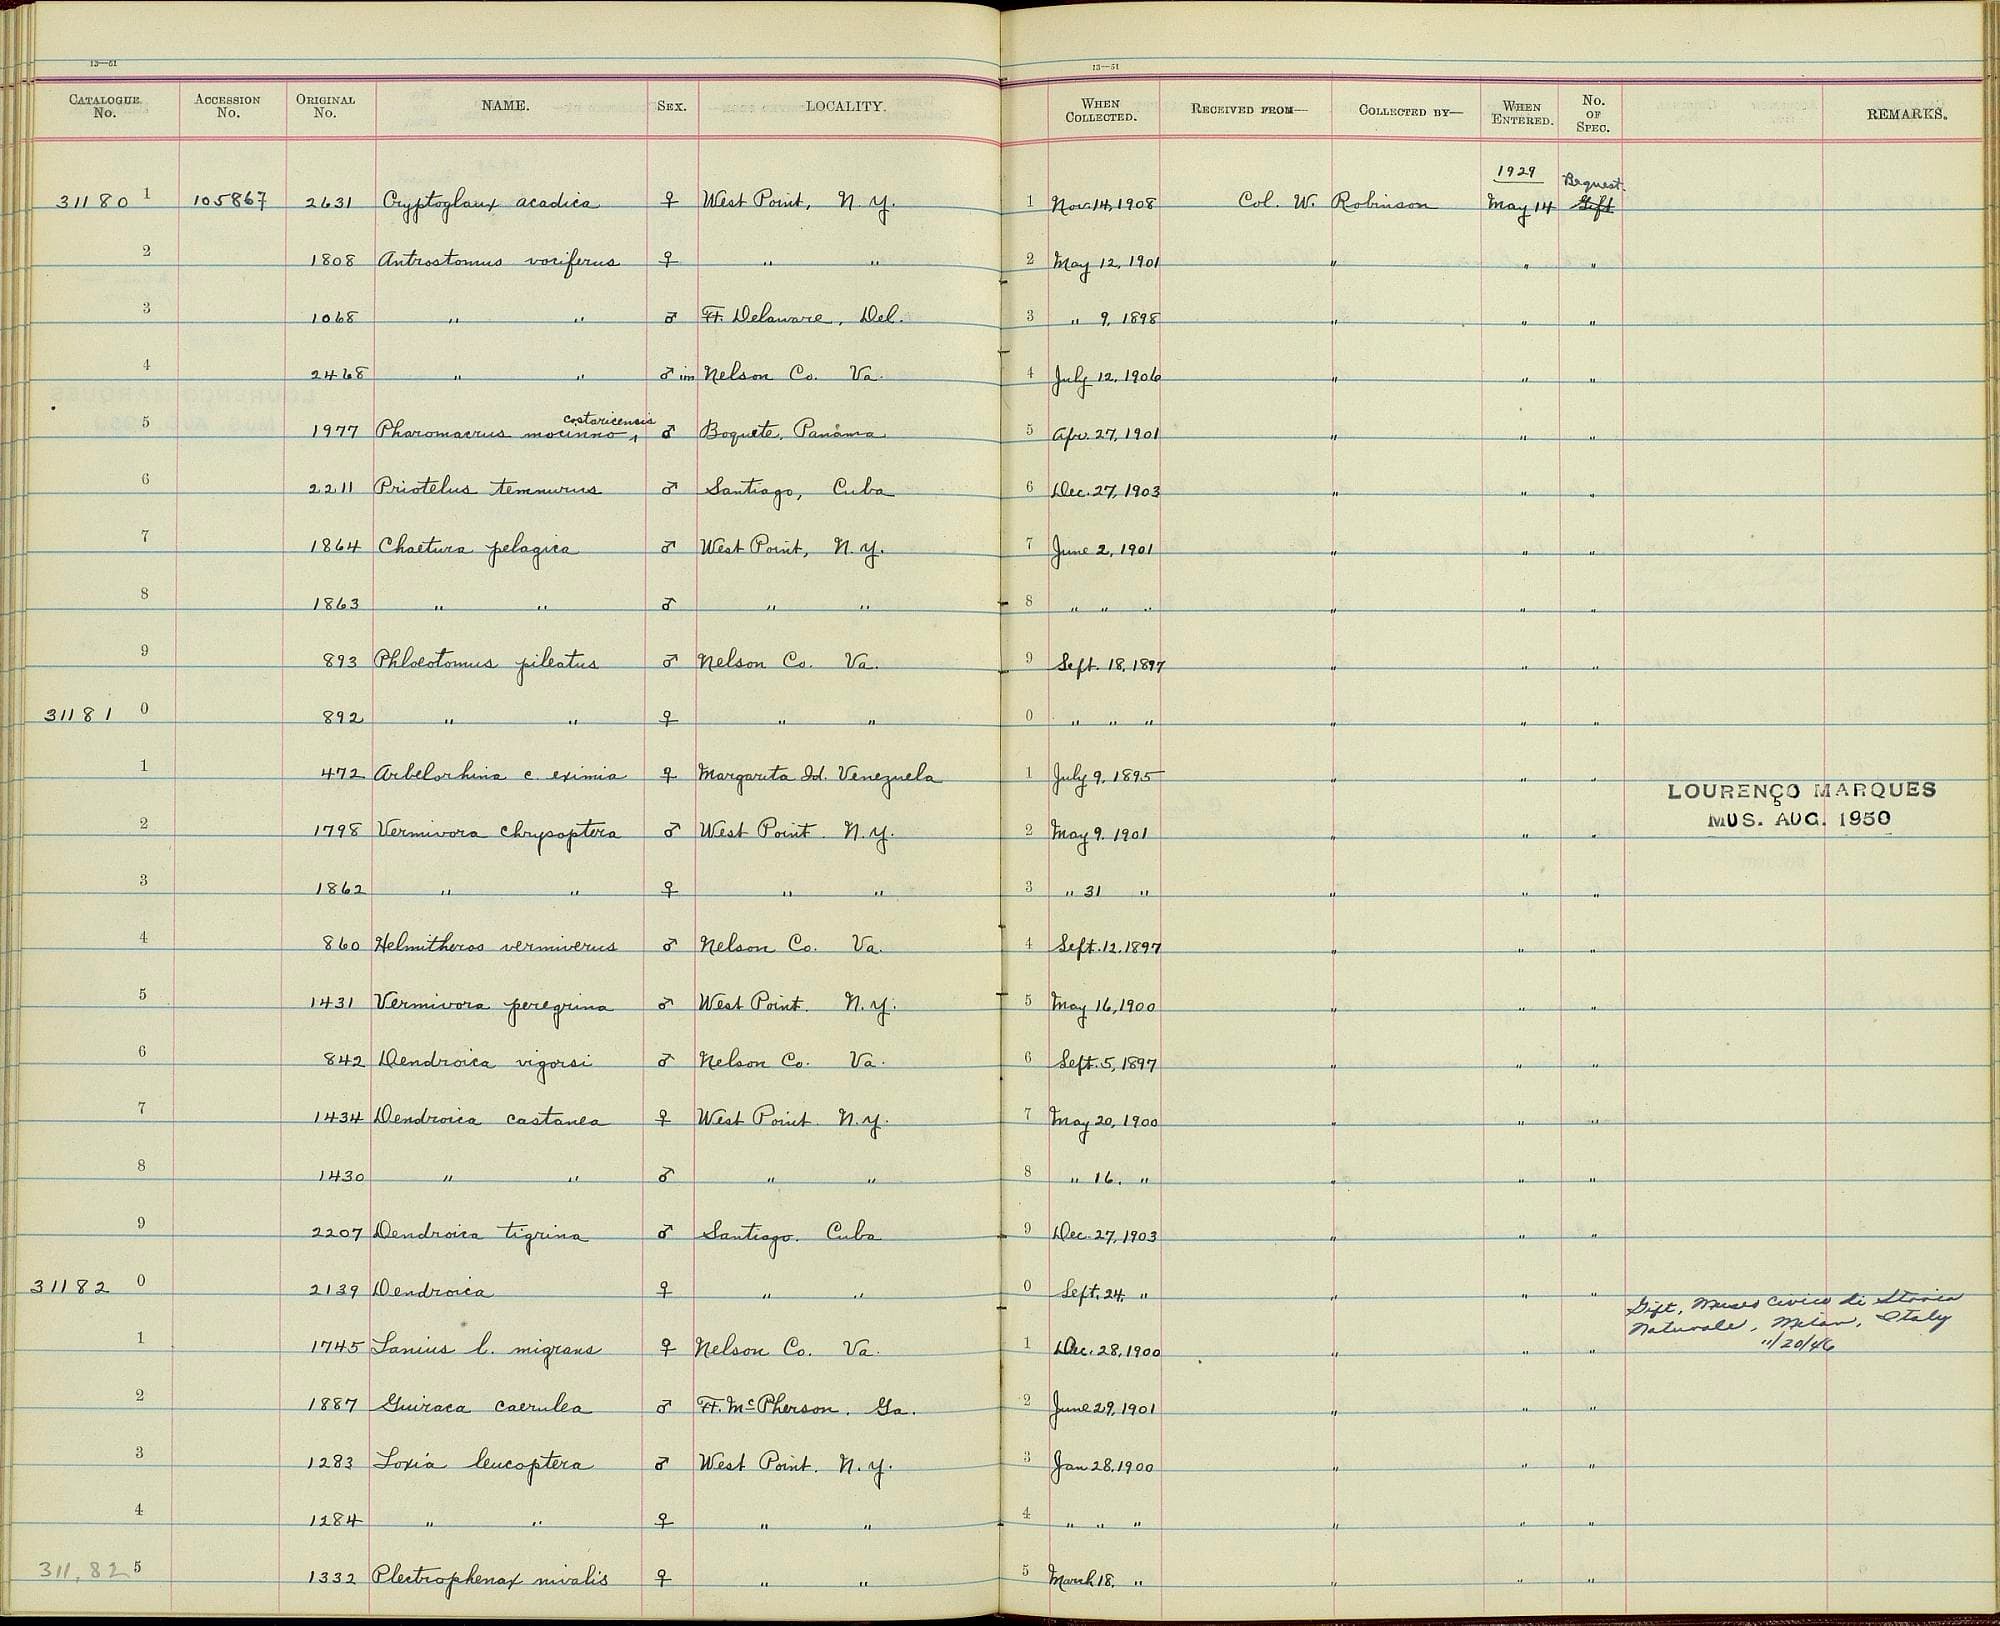 13—51 13—51
CATALOGUE No. ACCESSION No. ORIGINAL No. NAME. SEX. LOCALITY. WHEN COLLECTED. RECEIVED FROM— COLLECTED BY— WHEN ENTERED. No. OF SPEC. REMARKS.
1929 Bequest.
31180 1 105867 2631 Cryptoglaux acadica ♀ West Point, N.Y. 1 Nov. 14, 1908 Col. W. Robinson May 14 Gift
2 1808 Antrostomus vociferus ♀ " " 2 May 12, 1901 " " "
3 1068 " " ♂ Ft. Delaware, Del. 3 " 9, 1898 " " "
4 2468 " " ♂ im Nelson Co. Va. 4 July 12, 1906 " " "
5 1977 Pharomacrus mocinno ^ costaricensis ♂ Boquete, Panama 5 Apr. 27, 1901 " " "
6 2211 Priotelus temnurus ♂ Santiago, Cuba 6 Dec. 27, 1903 " " "
7 1864 Chaetura pelagica ♂ West Point, N.Y. 7 June 2, 1901 " " "
8 1863 " " ♂ " " 8 " " " " " "
9 893 Phloeotomus pileatus ♂ Nelson Co. Va. 9 Sept. 18, 1897 " " "
31181 0 892 " " ♀ " " 0 " " " " " "
1 472 Arbelorhina c. eximia ♀ Margarita Id. Venezuela 1 July 9, 1895 " " " LOURENÇO MARQUES
2 1798 Vermivora chrysoptera ♂ West Point. N.Y. 2 May 9. 1901 " " " MUS. AUG. 1950
3 1862 " " ♀ " " 3 " 31 " " " "
4 860 Helmitheros vermiverus ♂ Nelson Co. Va. 4 Sept. 12, 1897 " " "
5 1431 Vermivora peregrina ♂ West Point. N.Y. 5 May 16, 1900 " " "
6 842 Dendroica vigorsi ♂ Nelson Co. Va. 6 Sept. 5, 1897 " " "
7 1434 Dendroica castanea ♀ West Point. N.Y. 7 May 20, 1900 " " "
8 1430 " " ♂ " " 8 " 16. " " " "
9 2207 Dendroica tigrina ♂ Santiago. Cuba 9 Dec. 27, 1903 " " "
31182 0 2139 Dendroica ♀ " " 0 Sept. 24, " " " " Gift, Museo Civico di Storia
Naturale, Milan, Italy
1 1745 Lanius l. migrans ♀ Nelson Co. Va. 1 Dec. 28, 1900 " " " 11/20/46
2 1887 Guiraca caerulea ♂ Ft. McPherson. Ga. 2 June 29, 1901 " " "
3 1283 Loxia leucoptera ♂ West Point. N.Y. 3 Jan 28, 1900 " " "
4 1284 " " ♀ " " 4 " " " " " "
311,82 5 1332 Plectrophenax nivalis ♀ " " 5 March 18. " " " "